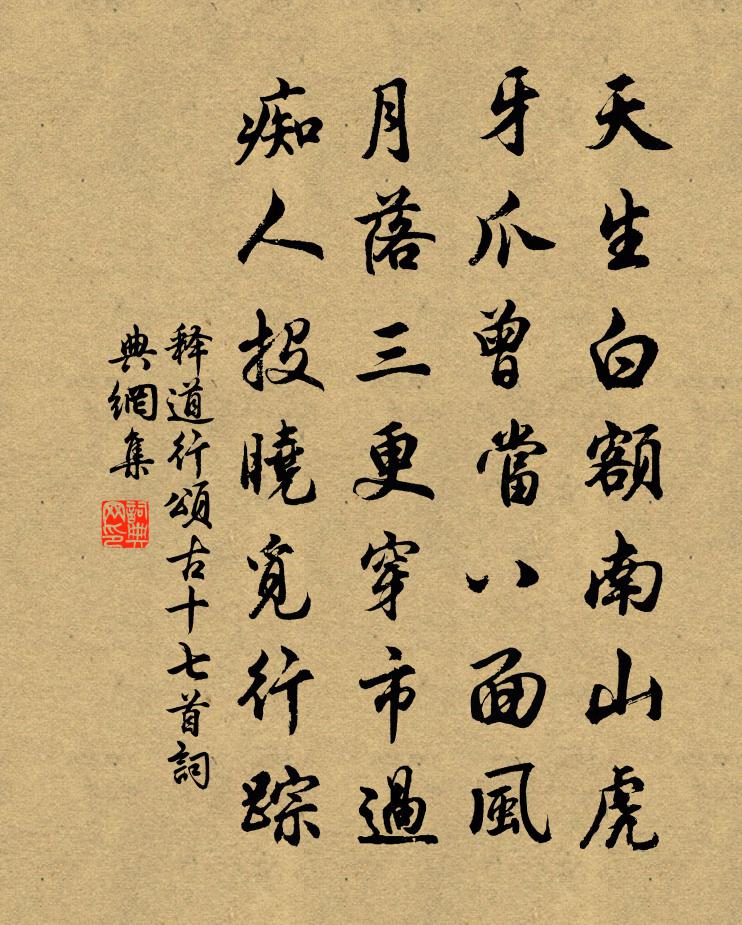 天生白額南山虎
牙爪曾當八面風
月落三更穿市過
痴人投曉覓行踪
释道行頌古十七首詞
典網集
詞典網印